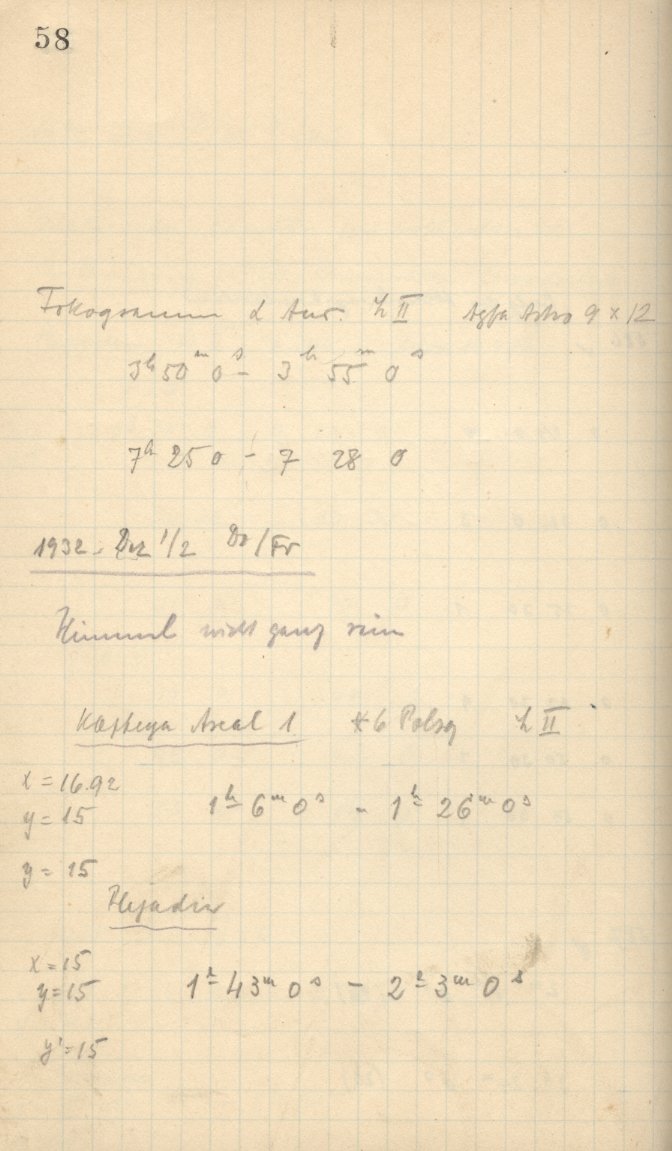 58
Fokogramm α Aur. L II Agfa Astro 9 x 12
3h 50m 0s - 3h 55m 0s
7h 25 0 - 7 28 0
1932. Dez 1/2 Do/Fr
Himmel nicht ganz rein
Areal 1 *6 Polsq L II
x = 16.92
y = 15
1h 6m 0s - 1h 26m 0s
y = 15
Plejaden
x = 15
y = 15
1h 43m 0s - 2h 3m 0s
y' = 15